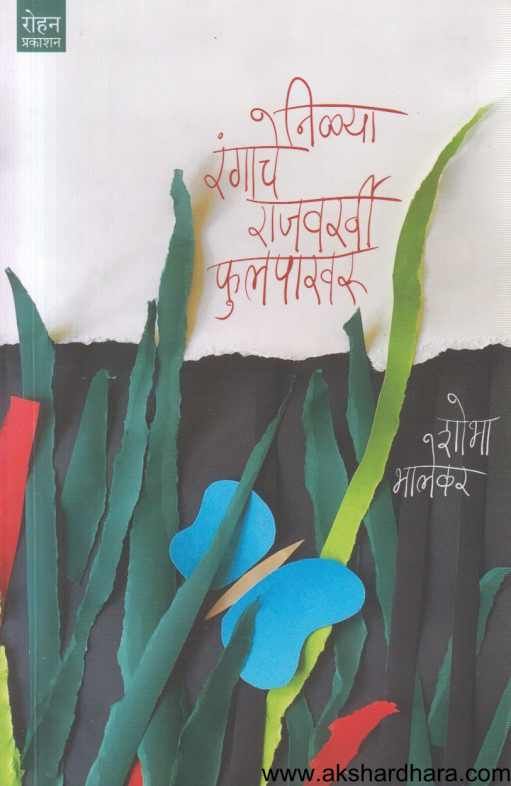 रोहन
प्रकाशन
निळ्या
रंगाचे
राजवर्खी
फुलपाखरू
शोभा
भालेकर
www.akshardhara.com